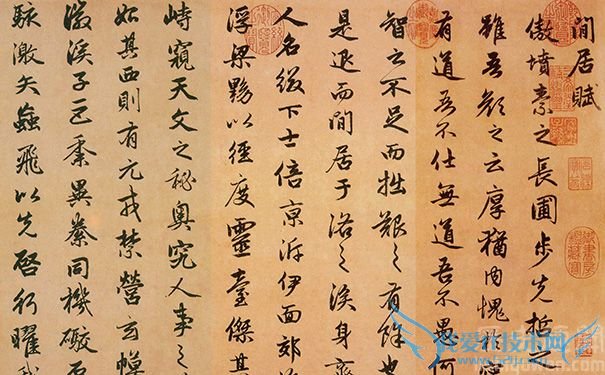 閒居賦
傲墳素之長圃步先哲之
雖吾顏之云厚猶內愧於
有道吾不仕無道吾不愚何
智之不足而拙艱之有餘也
是退而閒居于洛之涘身齊
人名綴下士倍京泝伊面郊
浮梁黝以徑度靈臺傑其
峙窺天文之秘奧究人事之
如其西則有元戎禁營玄幙
徽溪子巨黍異絭同機礮石
駭激矢蝱飛以先啓行曜我